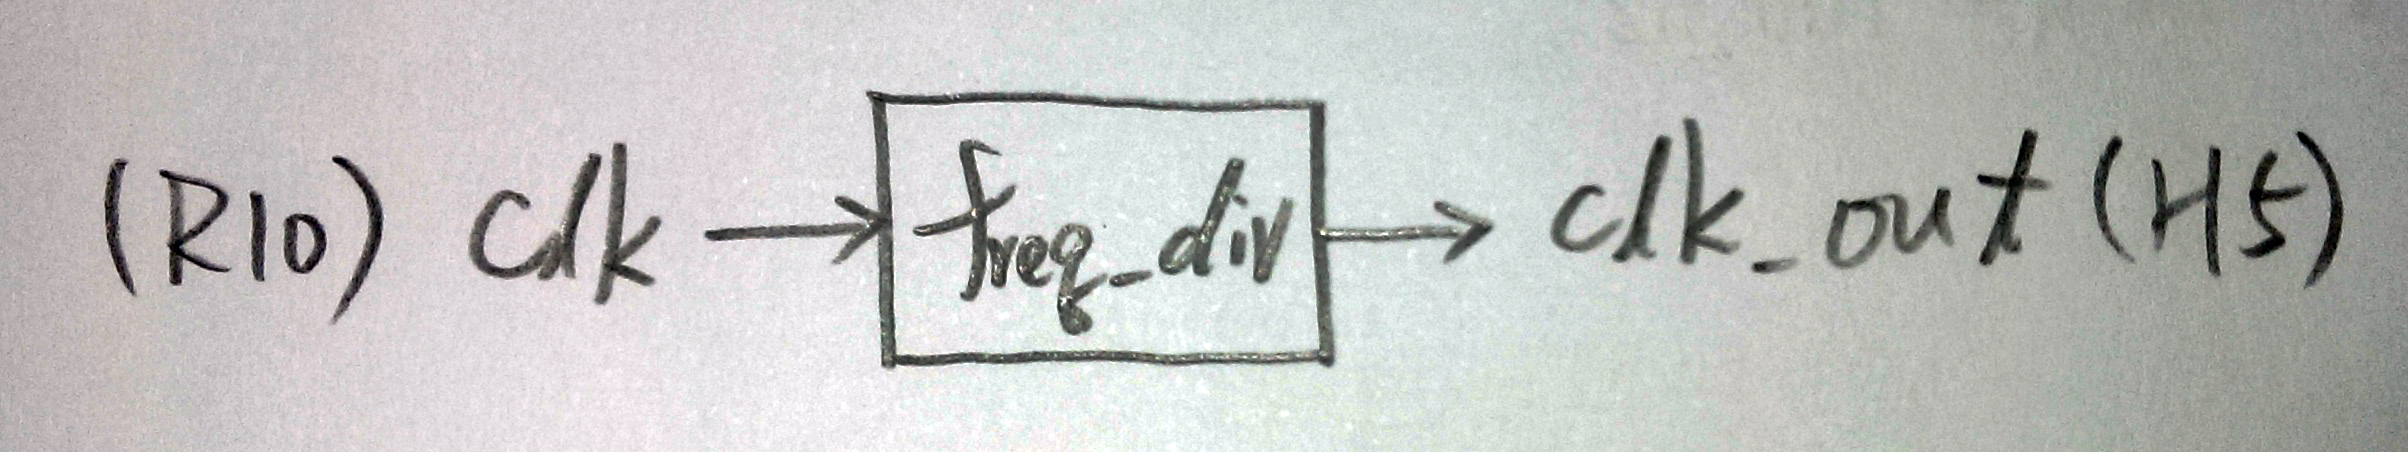 (R10) clk freq_div clk_out (H5)